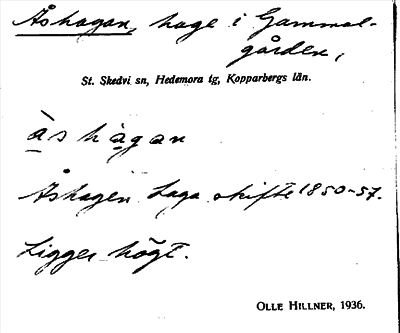 Åshagan, hage i Gammel-
gården,
St. Skedvi sn, Hedemora tg, Kopparbergs län.
às hàgan
Åshagen Laga skifte 1850-57.
Ligger högt.
OLLE HILLNER, 1936.